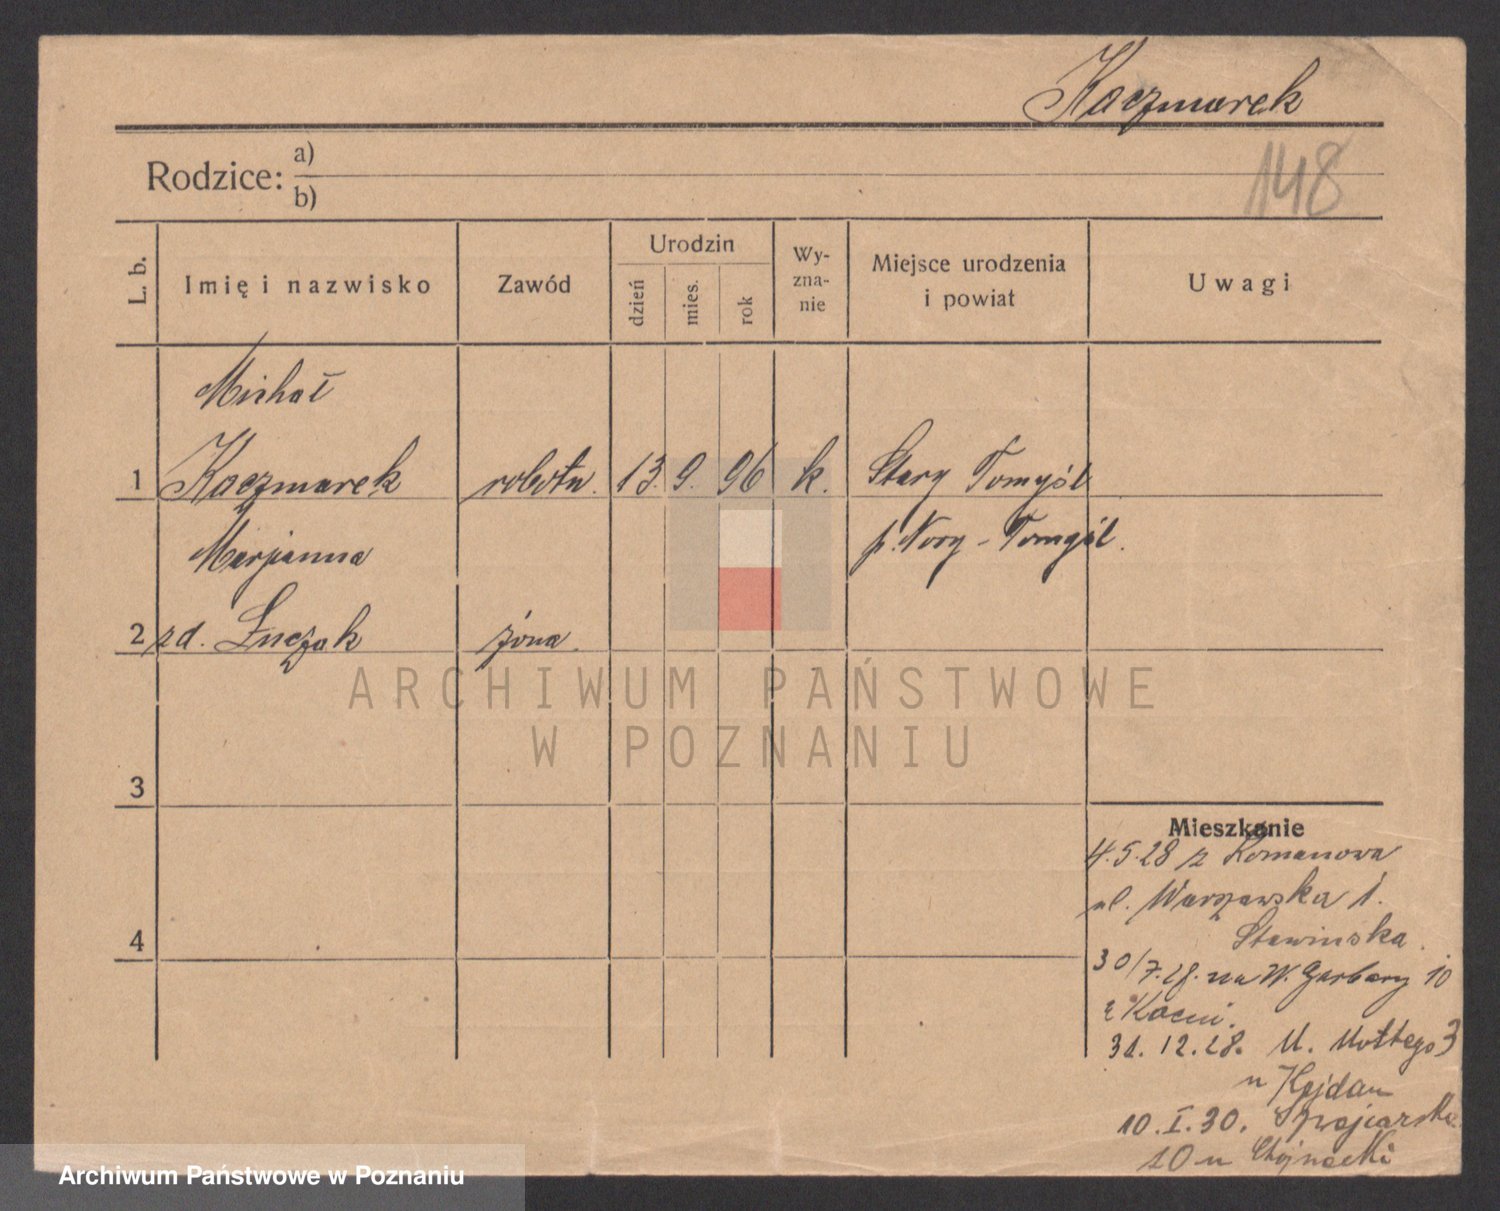 Kaczmarek
Rodzice: a)
b)
148
L. b.
Imię i nazwisko
Zawód
Urodzin
dzień
mies.
rok
Wy-
zna-
nie
Miejsce urodzenia
i powiat
Uwagi
Michał
1 Kaczmarek robotn. 13. 9. 96 k. Stary Tomyśl
Marjanna p. Nowy-Tomyśl.
2 zd. Łuczak żona.
ARCHIWUM PAŃSTWOWE
W POZNANIU
3
Mieszkanie
4.5.28 z Romanowa
ul. Warszawska 1.
4
Stawinska.
30/7.28. na W. Garbary 10
31. 12. 28. M. Mottego 3
u Hejdan
10. I. 30. Szwajcarska
10 u Chojnacki
Archiwum Państwowe w Poznaniu